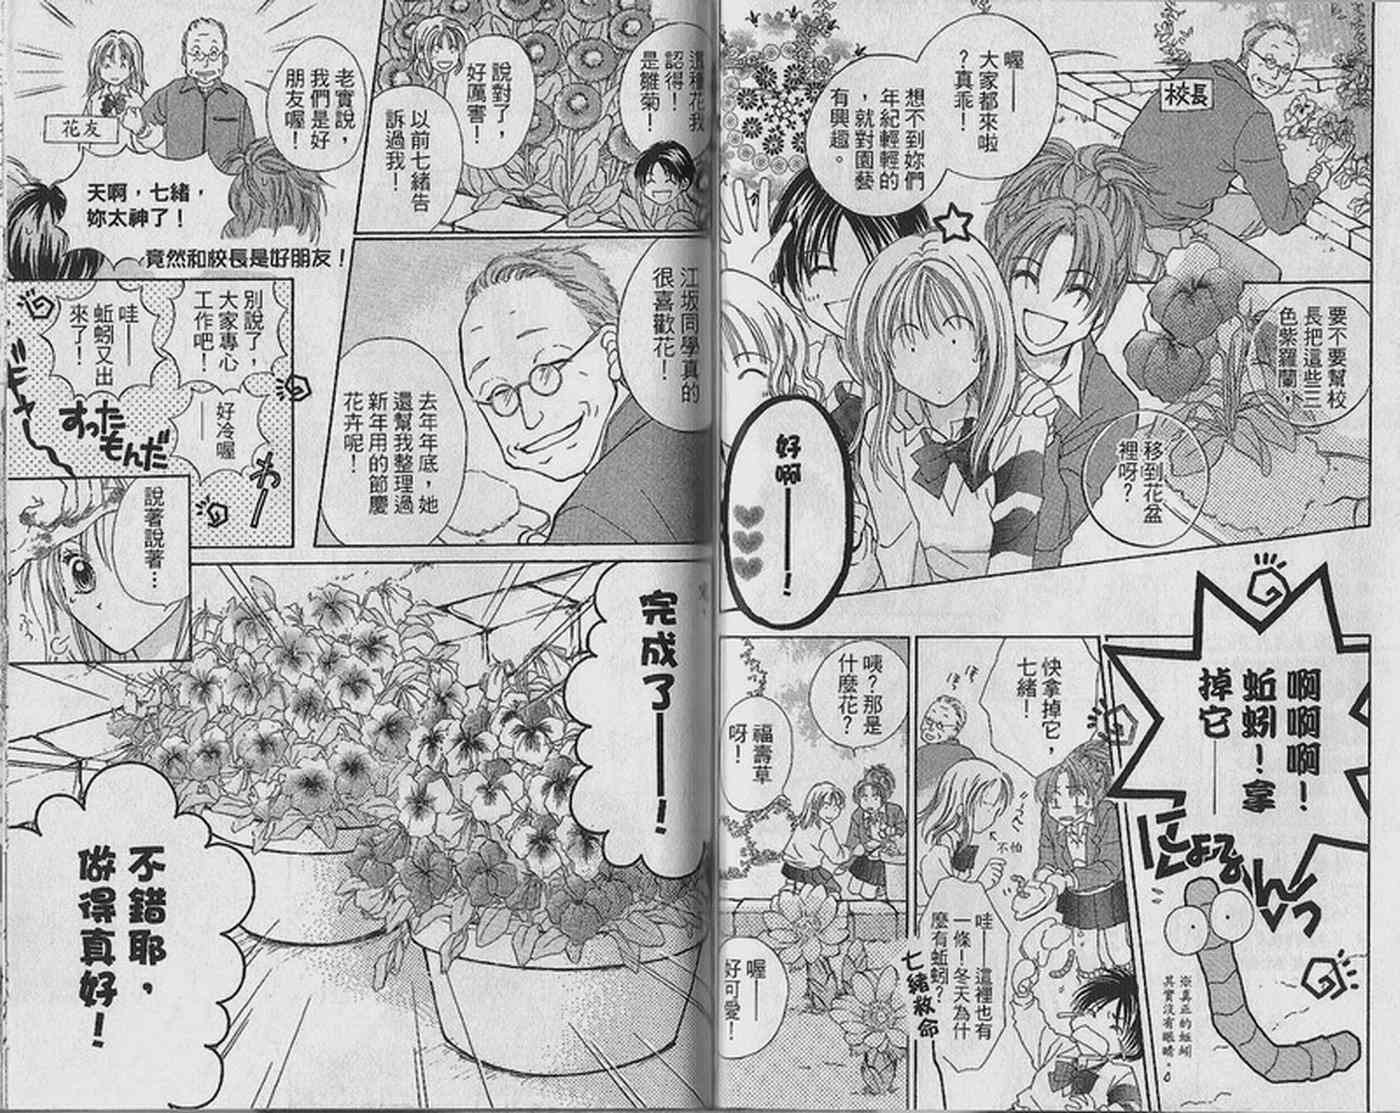 喔——
大家都來啦
？真乖！
想不到妳們
年紀輕輕的
，就對園藝
有興趣。
校長
要不要幫校
長把這些三
色紫羅蘭，
移到花盆
裡呀？
好啊——！
啊啊啊！
蚯蚓！拿
掉它——
にょろ
ん
※真正的蚯蚓
其實沒有眼睛。
快拿掉它，
七緒！
不怕
哇——這裡也有
一條！冬天為什
麼有蚯蚓？
七緒救命
咦？那是
什麼花？
福壽草
呀！
喔——
好可愛！
這種花我
認得！
是雛菊！
說對了，
好厲害！
以前七緒告
訴過我！
老實說，
我們是好
朋友喔！
花友
天啊，七緒，
妳太神了！
竟然和校長是好朋友！
江坂同學真的
很喜歡花！
去年年底，她
還幫我整理過
新年用的節慶
花卉呢！
別說了，
大家專心
工作吧！
哇——
蚯蚓又出
來了！
好冷喔
——
すった
もんだ
わー
說著說著…
完成了——！
不錯耶，
做得真好！